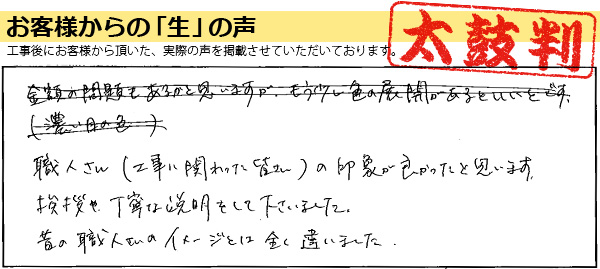 お客様からの「生」の声
太鼓判
工事後にお客様から頂いた、実際の声を掲載させていただいております。
金額の問題もあるかと思いますが、もう少し色の展開があるといいとです。
(濃い目の色 )
職人さん(工事に関わった皆さん)の印象が良かったと思います。
挨拶や丁寧な説明をして下さいました。
昔の職人さんのイメージとは全く違いました.